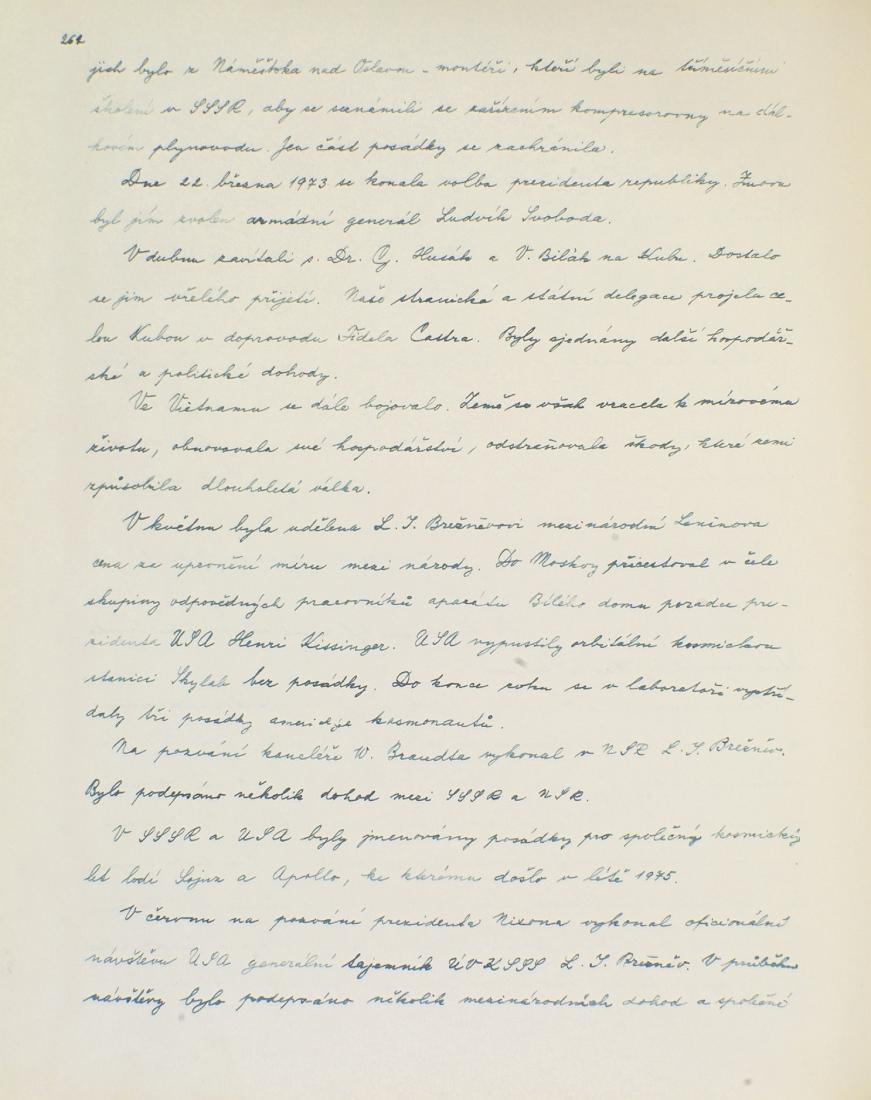 264
jich bylo z Náměštoka nad Oslavou - montéři, kteří byli na tříměsíčním
školení v SSSR, aby se seznámili se zařízením kompresorovny na dál-
kovém plynovodu. Jen část posádky se zachránila.
Dne 22. března 1973 se konala volba prezidenta republiky. Znovu
byl jím zvolen armádní generál Ludvík Svoboda.
V dubnu zavítali s. Dr. G. Husák a V. Bilák na Kubu. Dostalo
se jim vřelého přijetí. Naše stranická a státní delegace projela ce-
lou Kubou v doprovodu Fidela Castra. Byly sjednány další hospodář-
ské a politické dohody.
Ve Vietnamu se dále bojovalo. Země se však vracela k mírovému
životu, obnovovala své hospodářství, odstraňovala škody, které zemi
způsobila dlouholetá válka.
V květnu byla udělena L. I. Brežněvovi mezinárodní Leninova
cena za upevnění míru mezi národy. Do Moskvy přicestoval v čele
skupiny odpovědných pracovníků aparátu Bílého domu poradce pre-
zidenta USA Henri Kissinger. USA vypustily orbitální kosmickou
stanici Skylab bez posádky. Do konce roku se v laboratoři vystří-
daly tři posádky kosmonautů.
Na pozvání kancléře W. Brandta vykonal v NSR L. I. Brežněv.
Bylo podepsáno několik dohod mezi SSSR a NSR.
V SSSR a USA byly jmenovány posádky pro společný kosmický
let lodí Sojuz a Apollo, ke kterému došlo v létě 1975.
V červnu na pozvání prezidenta Nixona vykonal oficionální
návštěvu USA generální tajemník ÚV KSSS L. I. Brežněv. V průběhu
návštěvy bylo podepsáno několik mezinárodních dohod a společné